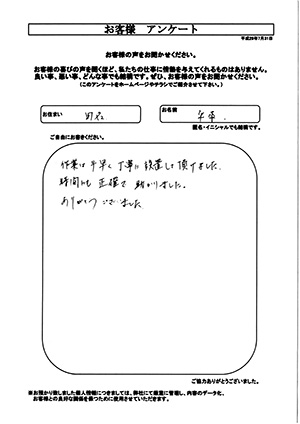 お客様 アンケート
平成25年7月31日
お客様の声をお聞かせください。
お客様の喜びの声を聞くほど、私たちの仕事に情熱を与えてくれるものはありません。
良い事、悪い事、どんな事でも結構です。ぜひ、お客様の声をお聞かせ下さい。
(このアンケートをホームページやチラシでご紹介させて下さい。)
お住まい
お名前
匿名・イニシャルでも結構です。
ご自由にお書きください。
作業は手早く丁寧に設置して頂けました。
時間にも正確で助かりました。
ありがとうございました
ご協力ありがとうございました。
※お預かり致しました個人情報につきましては、弊社にて厳重に管理し、内容のデータ化、
お客様との良好な関係を保つために使用させていただきます。